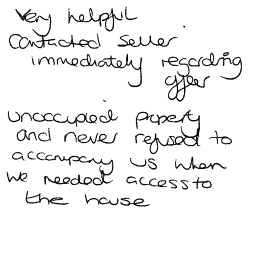 Very helpful
Contacted seller
immediately regarding
offer
unoccupied property
and never refused to
accompany us when
we needed access to
the house